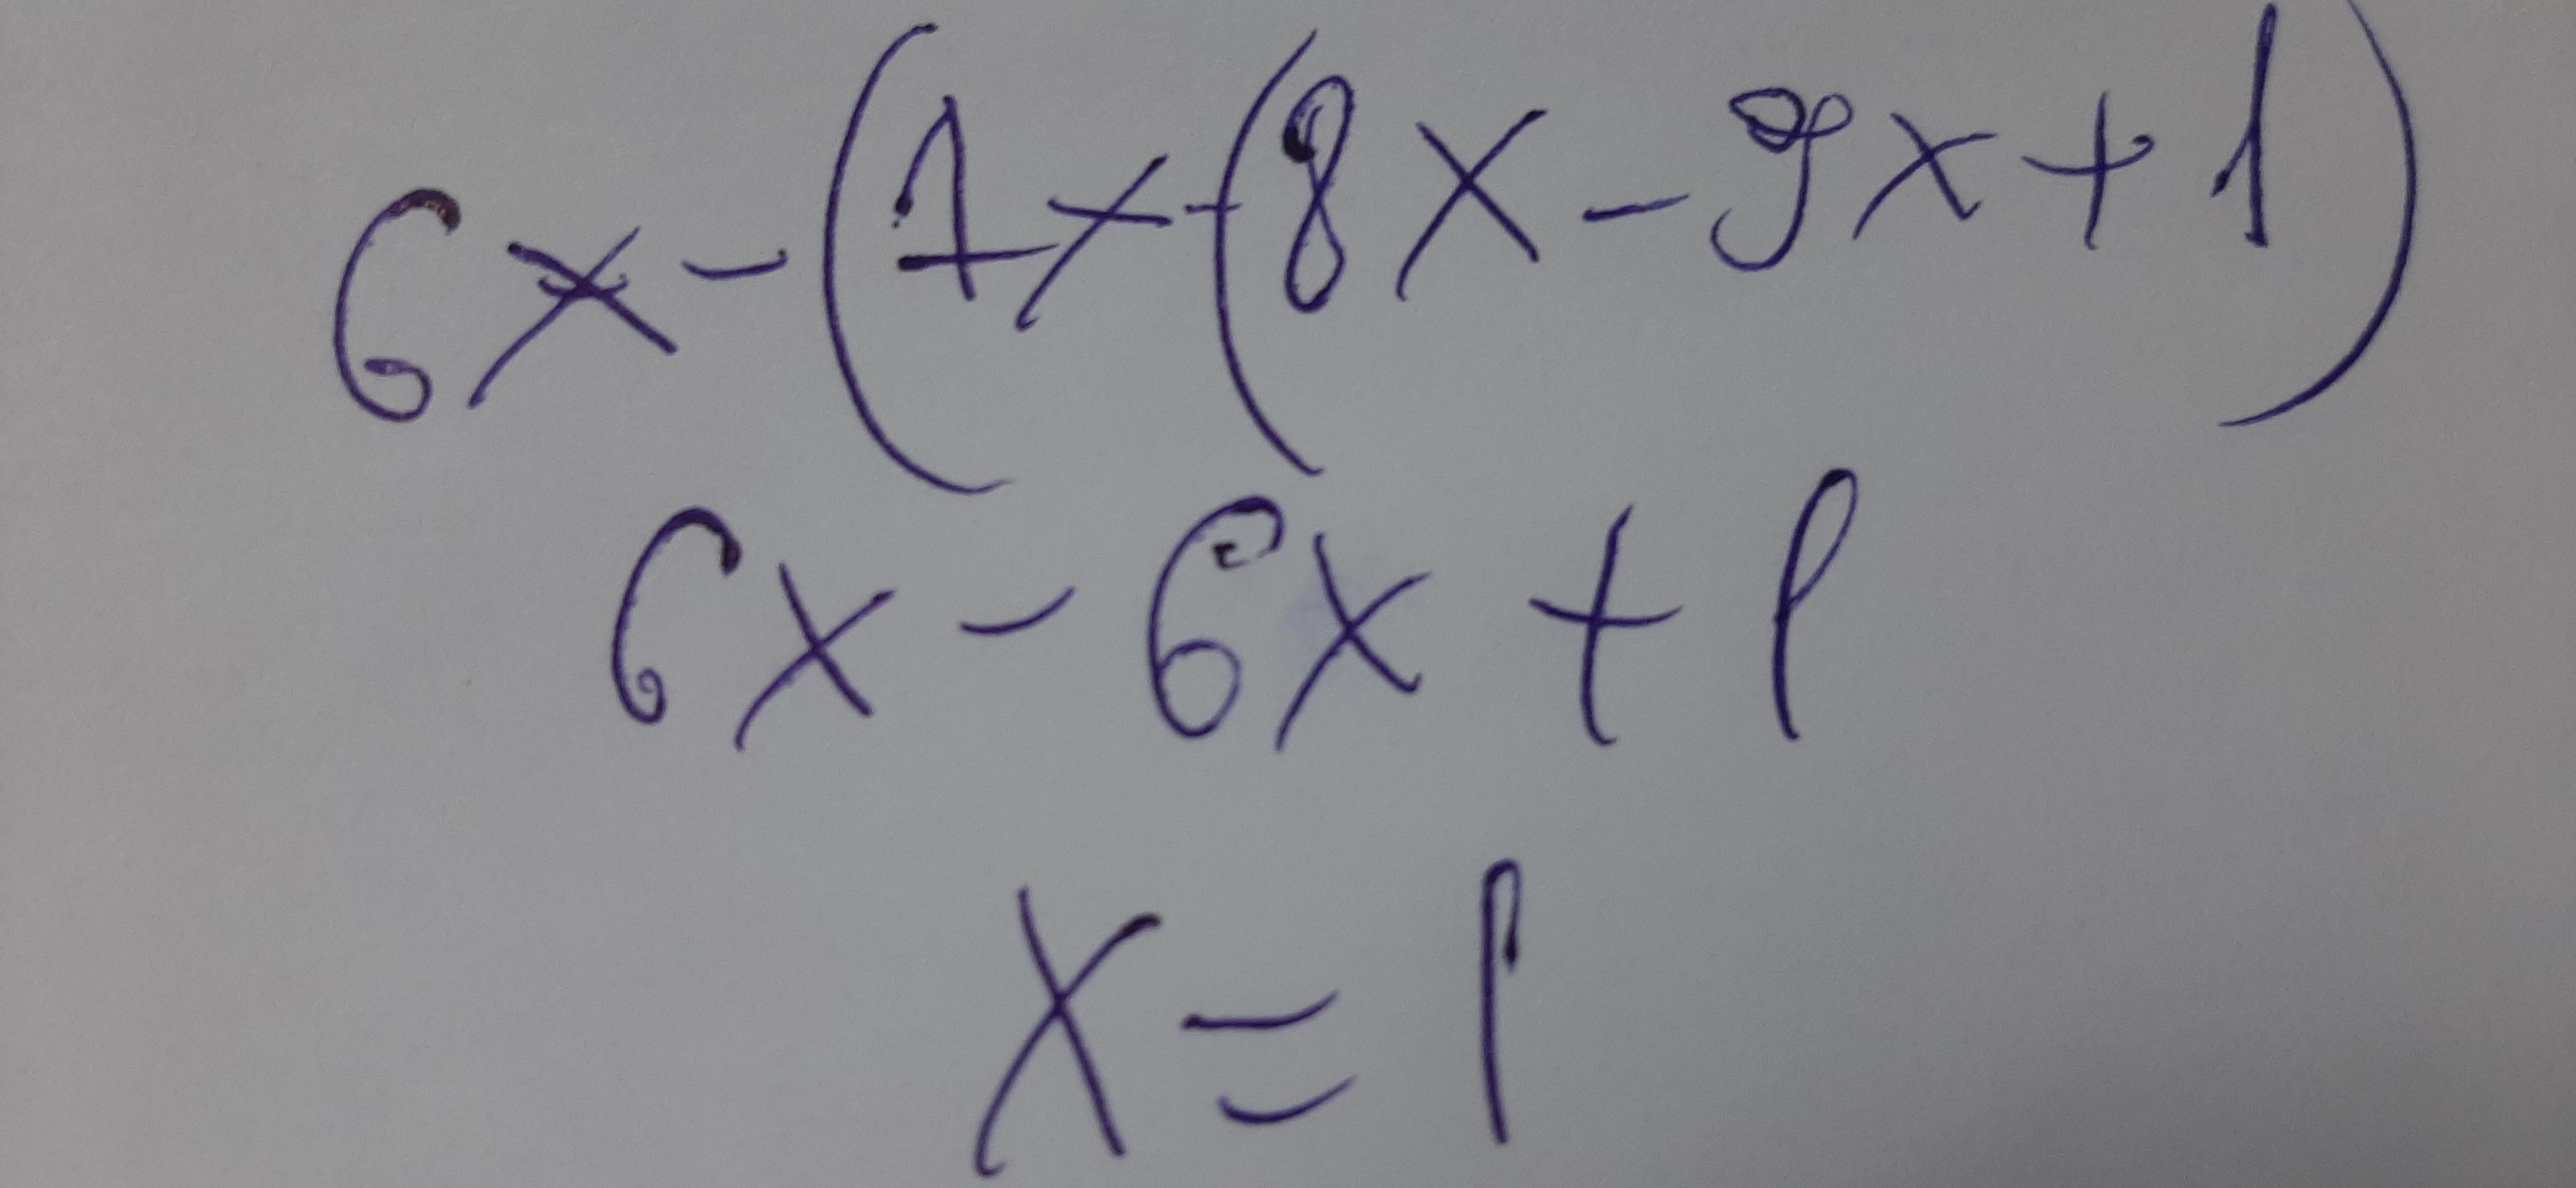 6x - (7x - (8x - 9x + 1)
6x - 6x + 1
x = 1